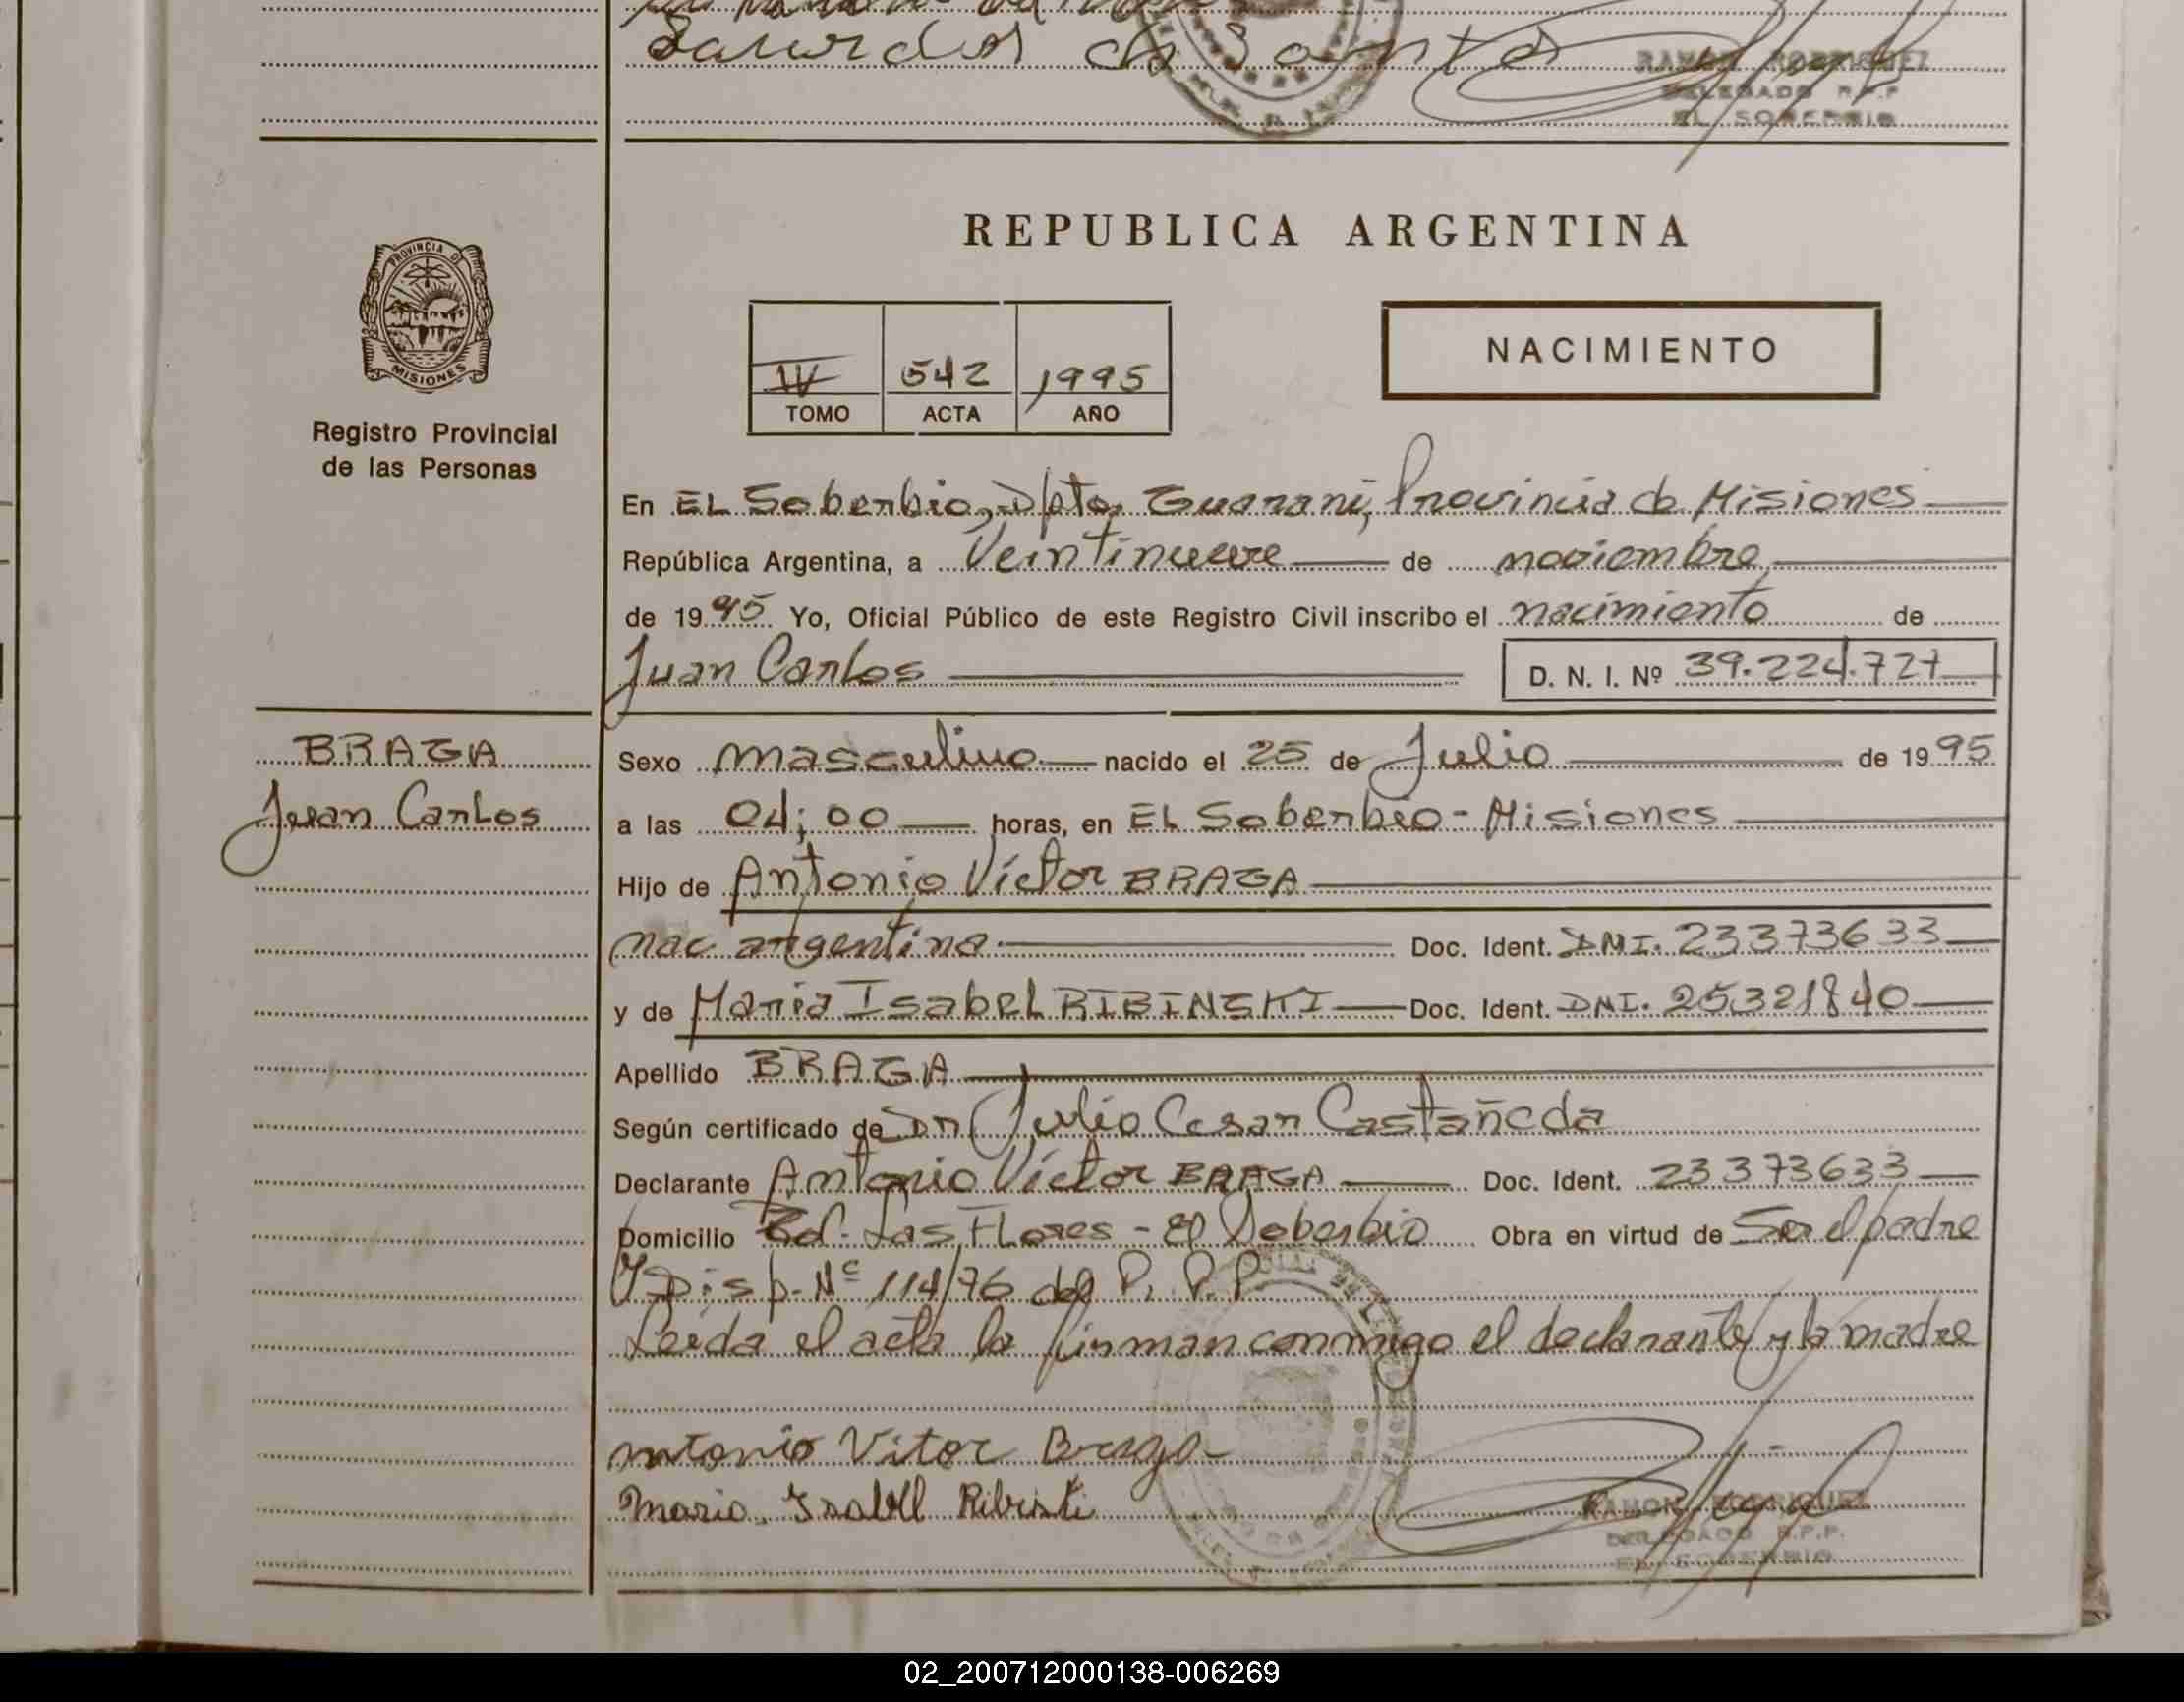 RAMON RODRIGUEZ
DELEGADO R.P.P
EL SOBERBIO
PROVINCIA DE
MISIONES
Registro Provincial
de las Personas
REPUBLICA ARGENTINA
IV 542 1995
TOMO ACTA AÑO
NACIMIENTO
En EL Soberbio, Dpto, Guarani, Provincia de Misiones
República Argentina, a Veintinueve de noviembre
de 1995 Yo, Oficial Público de este Registro Civil inscribo el nacimiento de
Juan Carlos D. N. I. Nº 39.224.727
BRAGA
Juan Carlos
Sexo masculino nacido el 25 de Julio de 1995
a las 04:00 horas, en EL Soberbio - Misiones
Hijo de Antonio Víctor BRAGA
nac argentina Doc. Ident. DNI. 23373633
y de Maria Isabel RIBINSKI Doc. Ident. DNI. 25321840
Apellido BRAGA
Según certificado de Dr Julio Cesar Castañeda
Declarante Antonio Víctor BRAGA Doc. Ident. 23373633
Domicilio Bd. Las Flores - El Soberbio Obra en virtud de Ser el padre
Y Disp. Nº 114/76 del P. P. P
Leída el acta la firman conmigo el declarante y la madre
Antonio Vitor Braga
Maria Isabell Ribisti
RAMON RODRIGUEZ
DELEGADO R.P.P.
EL SOBERBIO
02_200712000138-006269